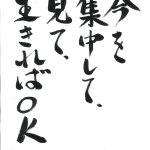 今を
集中して、
見て、
生きればOK